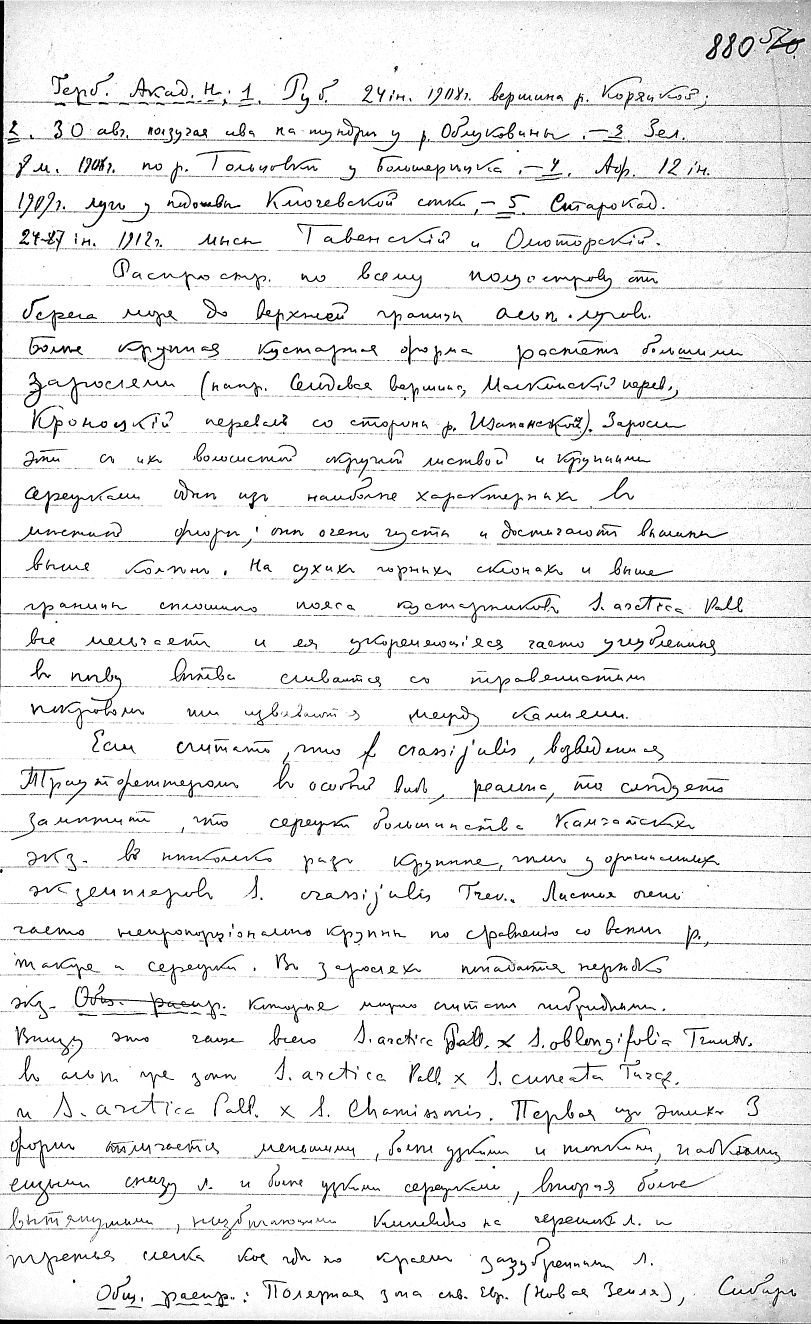 880
Герб. Акад. Н.; 1. Руб. 24 iн. 1908г. вершина р. Коряцкой;
2. 30 авг. ползучая ива на тундрѣ у р. Облуковины. — 3. Зел.
8 м. 1908г. по р. Гольцовки у Большерѣцка. — 4. Ар. 12 iн.
1909г. лугъ у подошвы Ключевской спки, — 5. Старокад.
24-27 iн. 1912г. мысы Тавенскiй и Олюторскiй.
Распростр. по всему полуострову отъ
берега моря до верхней границы альп. луговъ.
Болѣе крупная кустарная форма растетъ большими
зарослями (напр. вершина, Малкинскiй перев.,
Кроноцкiй перевалъ со стороны р. Щапинской). Заросли
эти съ ихъ волосистой округлой листвой и крупными
сережками одни изъ наиболѣе характерныхъ въ
мѣстной флорѣ; они очень густы и достигаютъ вышины
выше колѣна. На сухихъ горныхъ склонахъ и выше
границы сплошного пояса кустарниковъ S. arctica Pall
все мельчаетъ и ея укореняющiеся часто углубленныя
въ почву вѣтви сливаются съ травянистымъ
покровомъ или извиваются между камнями.
Если считать, что f crassijulis, возведенная
Траутфеттеромъ въ особый видъ, реальна, то слѣдуетъ
замѣтить, что сережки большинства Камчатскихъ
экз. въ нѣсколько разъ крупнѣе, чѣмъ у оригинальныхъ
экземпляровъ S. crassijulis Trev.. Листья очень
часто непропорцiонально крупны по сравненiю со всѣмъ р.,
также и сережки. Въ заросляхъ попадаются нерѣдко
экз. Общ. распр. которые можно считать гибридными.
Внизу это чаще всего S. arctica Pall. x S. oblongifolia Trautv.
въ альп же зонѣ S. arctica Pall. x S. cuneata Turcz.
и S. arctica Pall. x S. Chamissonis. Первая изъ этихъ 3
формъ отличается меньшими, болѣе узкими и тонкими,
сизыми снизу л. и болѣе узкими сережками, вторая болѣе
вытянутыми, низбѣгающими клиновидно на черешокъ л. и
третья слегка кое гдѣ по краямъ зазубренными л.
Общ. распр.: Полярная зона евр. (Новая Земля), Сибирь